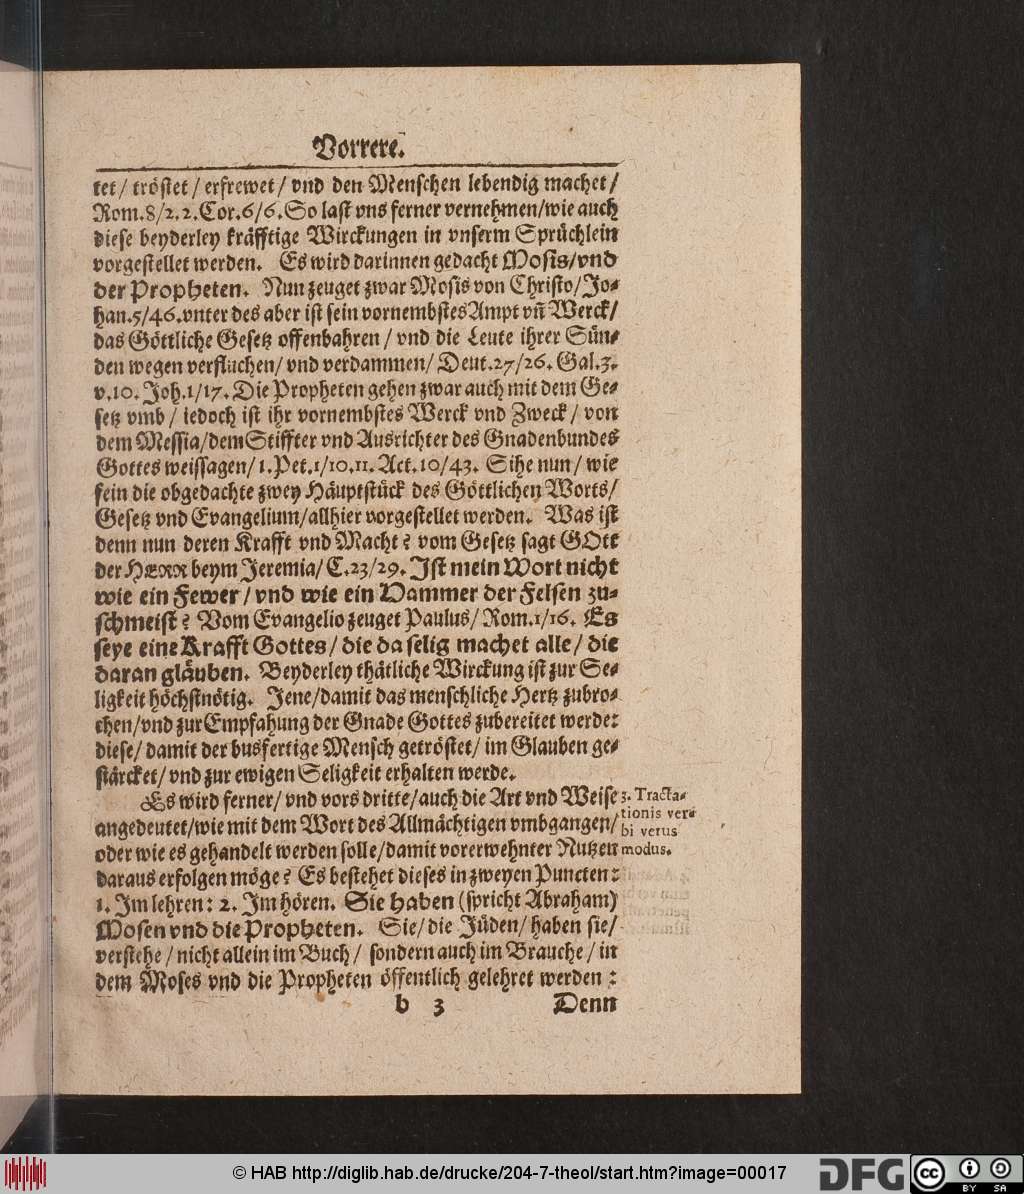 Vorrere.
tet/ tröstet/ erfrewet/ vnd den Menschen lebendig machet/
Rom.8/2.2.Cor.6/6. So last vns ferner vernehmen/wie auch
diese beyderley kräfftige Wirckungen in vnserm Sprüchlein
vorgestellet werden. Es wird darinnen gedacht Mosis/vnd
der Propheten. Nun zeuget zwar Mosis von Christo/Jo-
han.5/46.vnter des aber ist sein vornembstes Ampt vn̄ Werck/
das Göttliche Gesetz offenbahren/ vnd die Leute ihrer Sün-
den wegen verfluchen/ vnd verdammen/ Deut.27/26. Gal.3.
v.10. Joh.1/17. Die Propheten gehen zwar auch mit dem Ge-
setz vmb/ iedoch ist ihr vornembstes Werck vnd Zweck/ von
dem Messia/dem Stiffter vnd Ausrichter des Gnadenbundes
Gottes weissagen/ 1.Pet.1/10.11. Act.10/43. Sihe nun/ wie
fein die obgedachte zwey Häuptstück des Göttlichen Worts/
Gesetz vnd Evangelium/allhier vorgestellet werden. Was ist
denn nun deren Krafft vnd Macht? vom Gesetz sagt GOtt
der HERR beym Jeremia/ C.23/29. Jst mein Wort nicht
wie ein Fewer/ vnd wie ein Hammer der Felsen zu-
schmeist? Vom Evangelio zeuget Paulus/ Rom.1/16. Es
seye eine Krafft Gottes/ die da selig machet alle/ die
daran gläuben. Beyderley thätliche Wirckung ist zur Se-
ligkeit höchstnötig. Jene/damit das menschliche Hertz zubro-
chen/vnd zur Empfahung der Gnade Gottes zubereitet werde:
diese/ damit der busfertige Mensch getröstet/ im Glauben ge-
stärcket/ vnd zur ewigen Seligkeit erhalten werde.
Es wird ferner/ vnd vors dritte/auch die Art vnd Weise
3. Tracta-
angedeutet/wie mit dem Wort des Allmächtigen vmbgangen/
tionis ver-
bi verus
oder wie es gehandelt werden solle/damit vorerwehnter Nutzen
modus.
daraus erfolgen möge? Es bestehet dieses in zweyen Puncten:
1. Jm lehren: 2. Jm hören. Sie haben (spricht Abraham)
Mosen vnd die Propheten. Sie/ die Jüden/ haben sie/
verstehe/ nicht allein im Buch/ sondern auch im Brauche/ in
dem Moses vnd die Propheten öffentlich gelehret werden:
b 3 Denn
© HAB http://diglib.hab.de/drucke/204-7-theol/start.htm?image=00017
DFG
cc BY SA